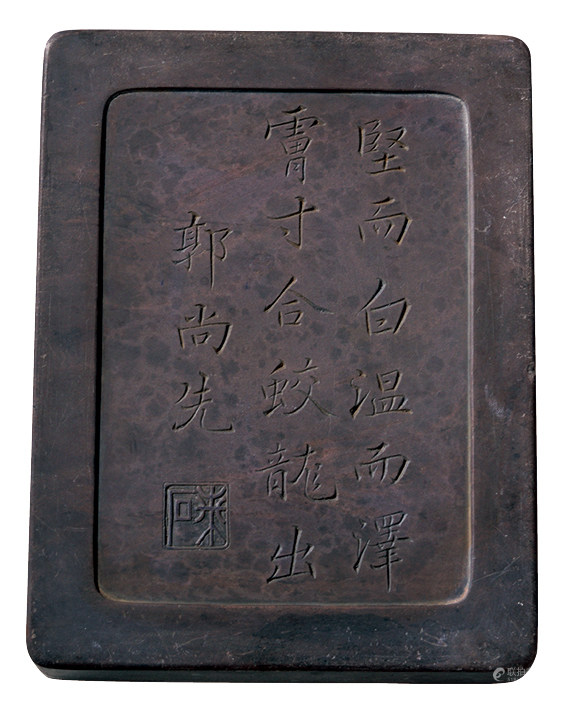 堅而白温而澤
膚寸合蛟龍出
郭尚先